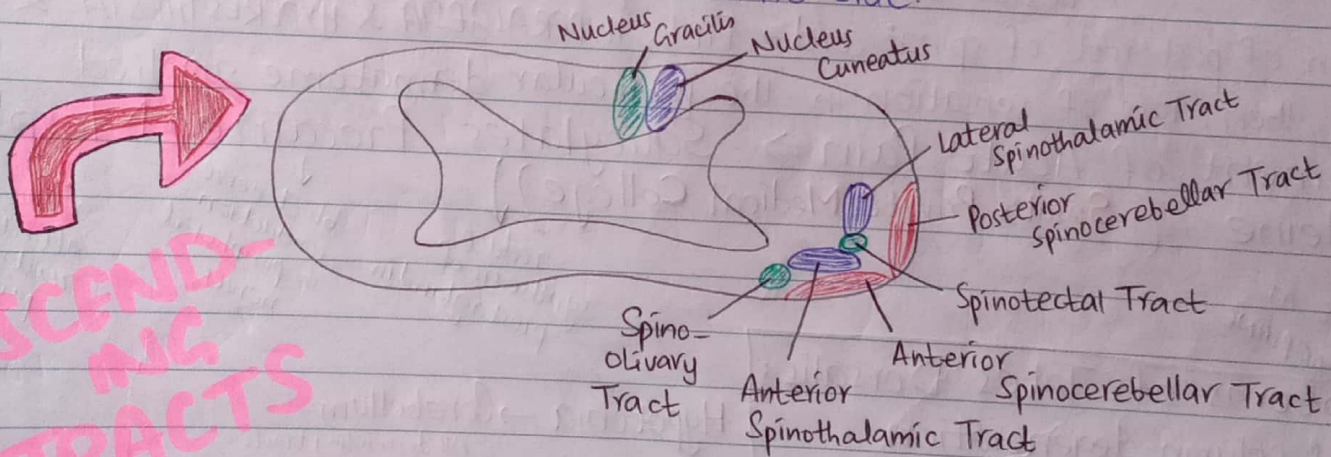 Nucleus Gracilis
Nucleus
Cuneatus
Lateral
Spinothalamic Tract
Posterior
Spinocerebellar Tract
Spinotectal Tract
Anterior
Spinocerebellar Tract
Anterior
Spinothalamic Tract
Spino-
olivary
Tract
SCEND-
ING
TRACTS